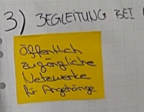 3) BEGLEITUNG BEI
Öffentlich
zugängliche
Netzwerke
für Angehörige